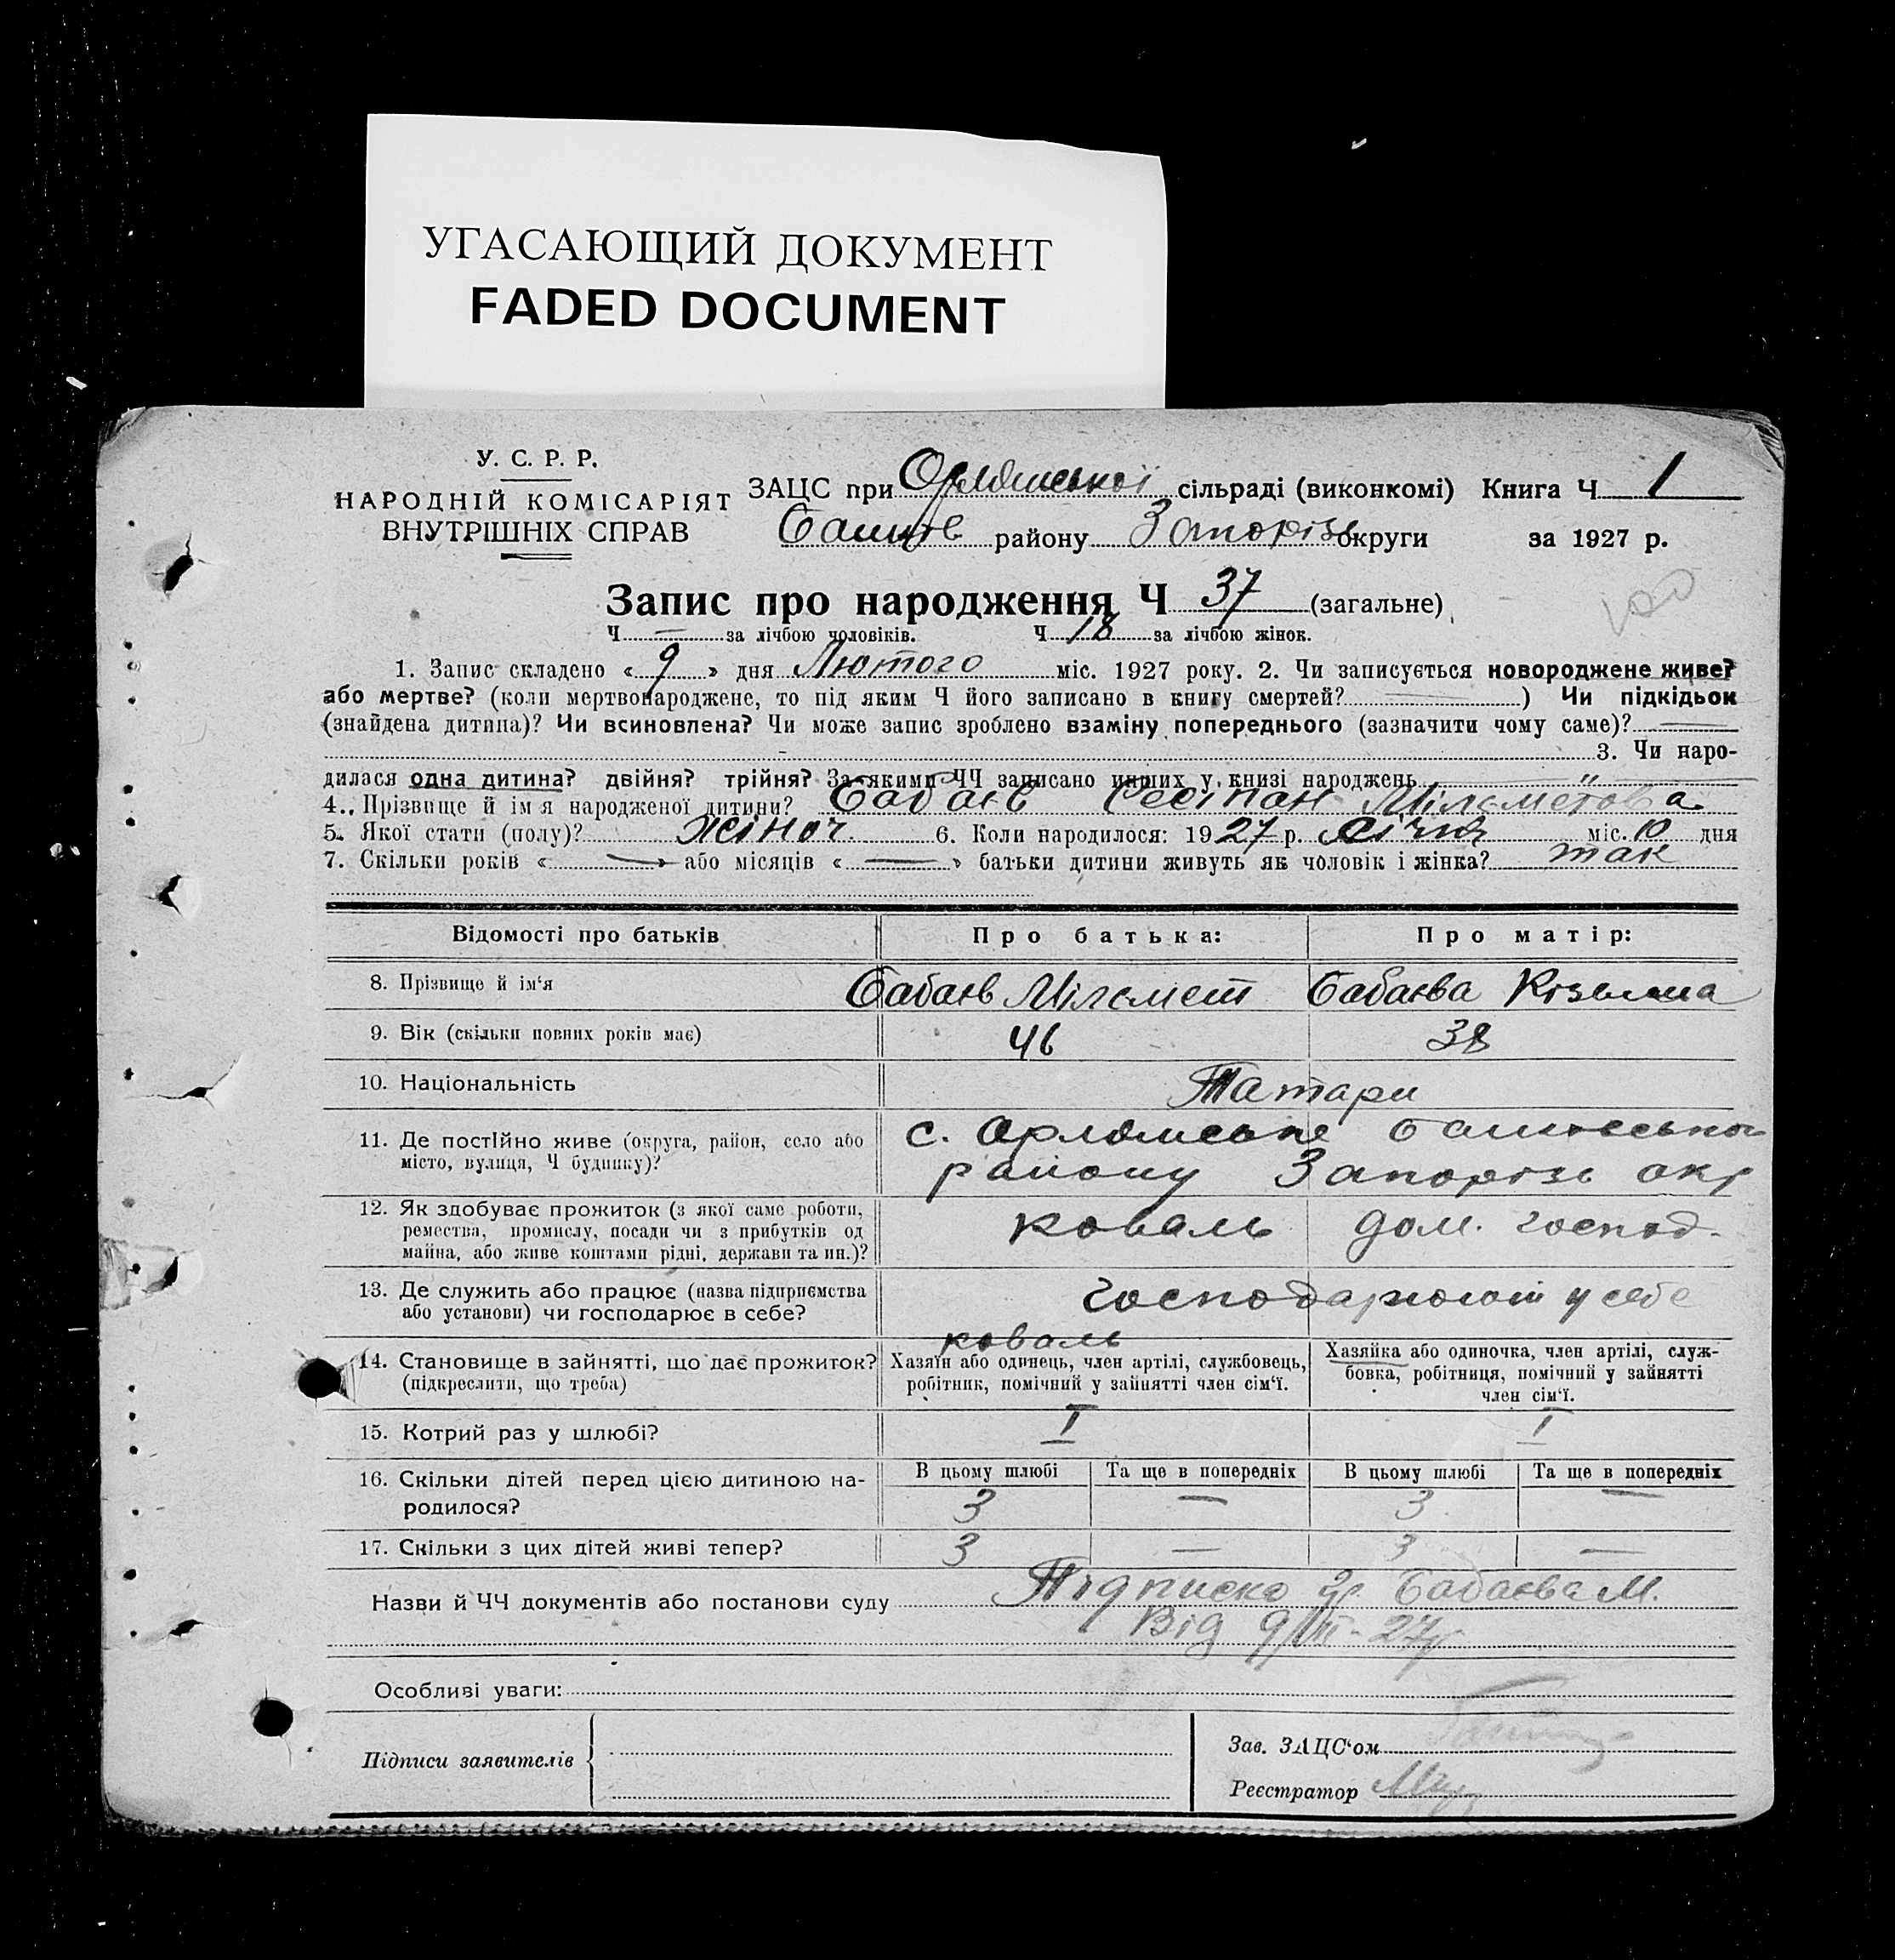 УГАСАЮЩИЙ ДОКУМЕНТ
FADED DOCUMENT
У. С. Р. Р.
НАРОДНІЙ КОМІСАРІЯТ
ВНУТРІШНІХ СПРАВ
ЗАЦС при сільраді (виконкомі) Книга Ч 1
району Запорізь округи за 1927 р.
Запис про народження Ч 37 (загальне)
Ч — за лічбою чоловіків. Ч 18 за лічбою жінок.
1. Запис складено « 9 » дня Лютого міс. 1927 року. 2. Чи записується новороджене живе?
або мертве? (коли мертвонароджене, то під яким Ч його записано в книгу смертей? — ) Чи підкідьок
(знайдена дитина)? Чи всиновлена? Чи може запис зроблено взаміну попереднього (зазначити чому саме)? —
3. Чи наро-
дилася одна дитина? двійня? трійня? За якими ЧЧ записано инших у книзі народжень — „ —
4. Прізвище й ім'я народженої дитини? Бабаєв
5. Якої стати (полу)? жіноч. 6. Коли народилося: 1927 р. січня міс. 10 дня
7. Скільки років « — » або місяців « — » батьки дитини живуть як чоловік і жінка? так
Відомості про батьків Про батька: Про матір:
8. Прізвище й ім'я Бабаєв Бабаєва
9. Вік (скільки повних років має) 46 38
10. Національність Татари
11. Де постійно живе (округа, район, село або
місто, вулиця, Ч будинку)?
с.
району Запорізь окр
12. Як здобуває прожиток (з якої саме роботи,
ремества, промислу, посади чи з прибутків од
майна, або живе коштами рідні, держави та ин.)?
коваль дом. господ.
13. Де служить або працює (назва підприємства
або установи) чи господарює в себе?
господарюють у себе
коваль
14. Становище в зайнятті, що дає прожиток?
(підкреслити, що треба)
Хазяїн або одинець, член артілі, службовець,
робітник, помічний у зайнятті член сім'ї.
Хазяйка або одиночка, член артілі, служ-
бовка, робітниця, помічний у зайнятті
член сім'ї.
15. Котрий раз у шлюбі? I I
16. Скільки дітей перед цією дитиною на-
родилося?
В цьому шлюбі Та ще в попередніх В цьому шлюбі Та ще в попередніх
3 — 3 —
17. Скільки з цих дітей живі тепер? 3 — 3 —
Назви й ЧЧ документів або постанови суду Підписка гр. Бабаєва М.
Від
Особливі уваги:
Підписи заявителів
Зав. ЗАЦС'ом
Реєстратор